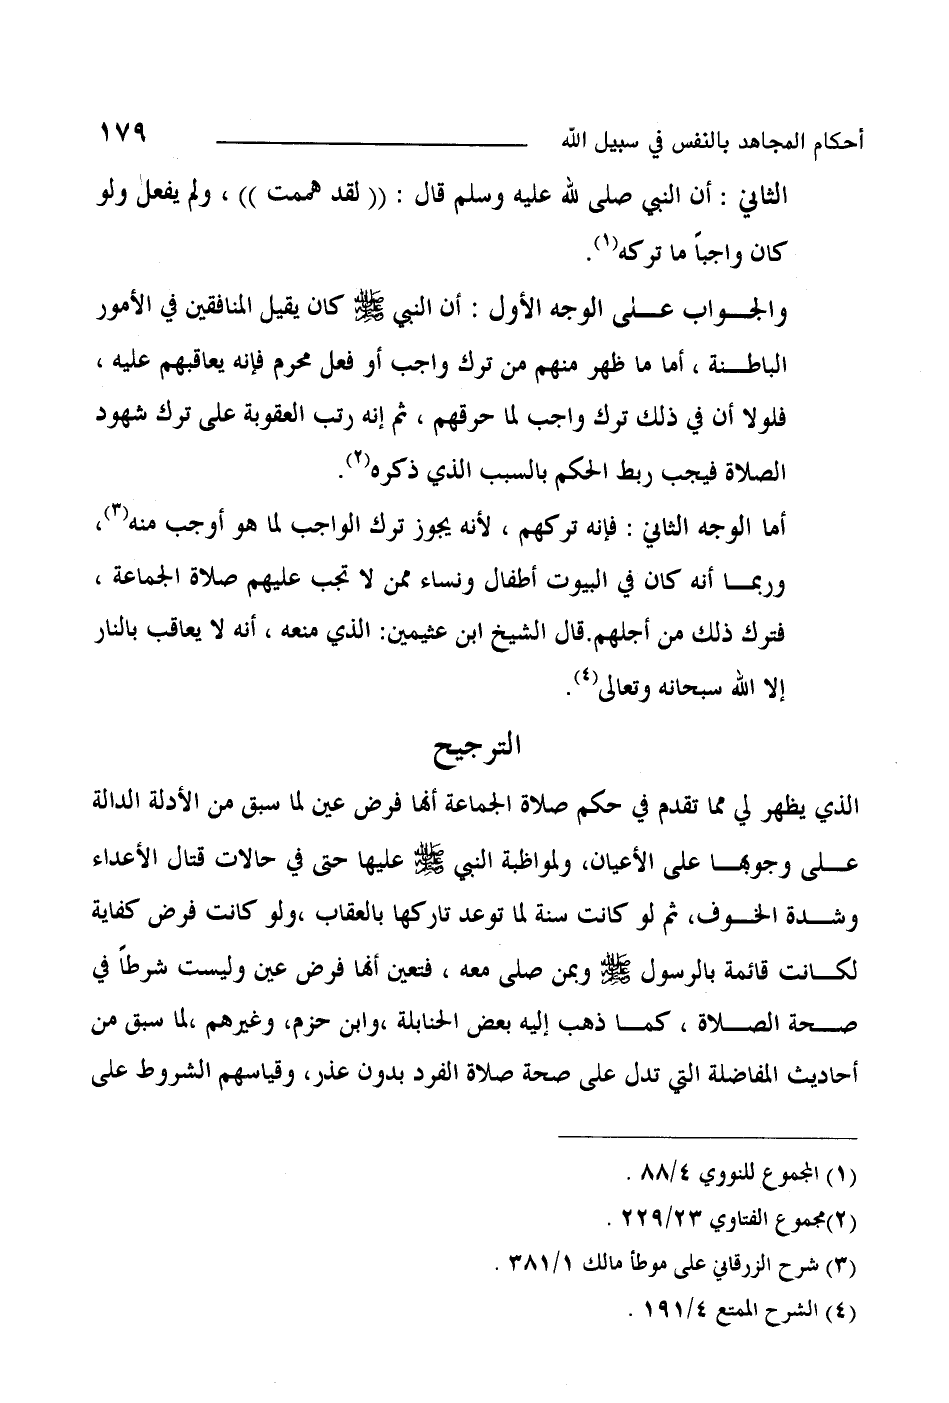 أحكام المجاهد بالنفس في سبيل الله ١٧٩
الثاني : أن النبي صلى لله عليه وسلم قال : (( لقد هممت )) ، ولم يفعل ولو
كان واجباً ما تركه(١).
والجــواب عــلى الوجه الأول : أن النبي ﷺ كان يقيل المنافقين في الأمور
الباطــنة ، أما ما ظهر منهم من ترك واجب أو فعل محرم فإنه يعاقبهم عليه ،
فلولا أن في ذلك ترك واجب لما حرقهم ، ثم إنه رتب العقوبة على ترك شهود
الصلاة فيجب ربط الحكم بالسبب الذي ذكره(٢).
أما الوجه الثاني : فإنه تركهم ، لأنه يجوز ترك الواجب لما هو أوجب منه(٣)،
وربمــا أنه كان في البيوت أطفال ونساء ممن لا تجب عليهم صلاة الجماعة ،
فترك ذلك من أجلهم.قال الشيخ ابن عثيمين: الذي منعه ، أنه لا يعاقب بالنار
إلا الله سبحانه وتعالى(٤).
الترجيح
الذي يظهر لي مما تقدم في حكم صلاة الجماعة أنها فرض عين لما سبق من الأدلة الدالة
عــلى وجوبهــا على الأعيان، ولمواظبة النبي ﷺ عليها حتى في حالات قتال الأعداء
وشــدة الخــوف، ثم لو كانت سنة لما توعد تاركها بالعقاب ،ولو كانت فرض كفاية
لكــانت قائمة بالرسول ﷺ وبمن صلى معه ، فتعين أنها فرض عين وليست شرطاً في
صــحة الصــلاة ، كمــا ذهب إليه بعض الحنابلة ،وابن حزم، وغيرهم ،لما سبق من
أحاديث المفاضلة التي تدل على صحة صلاة الفرد بدون عذر، وقياسهم الشروط على
(١) المجموع للنووي ٨٨/٤ .
(٢)مجموع الفتاوي ٢٢٩/٢٣ .
(٣) شرح الزرقاني على موطأ مالك ٣٨١/١ .
(٤) الشرح الممتع ١٩١/٤ .